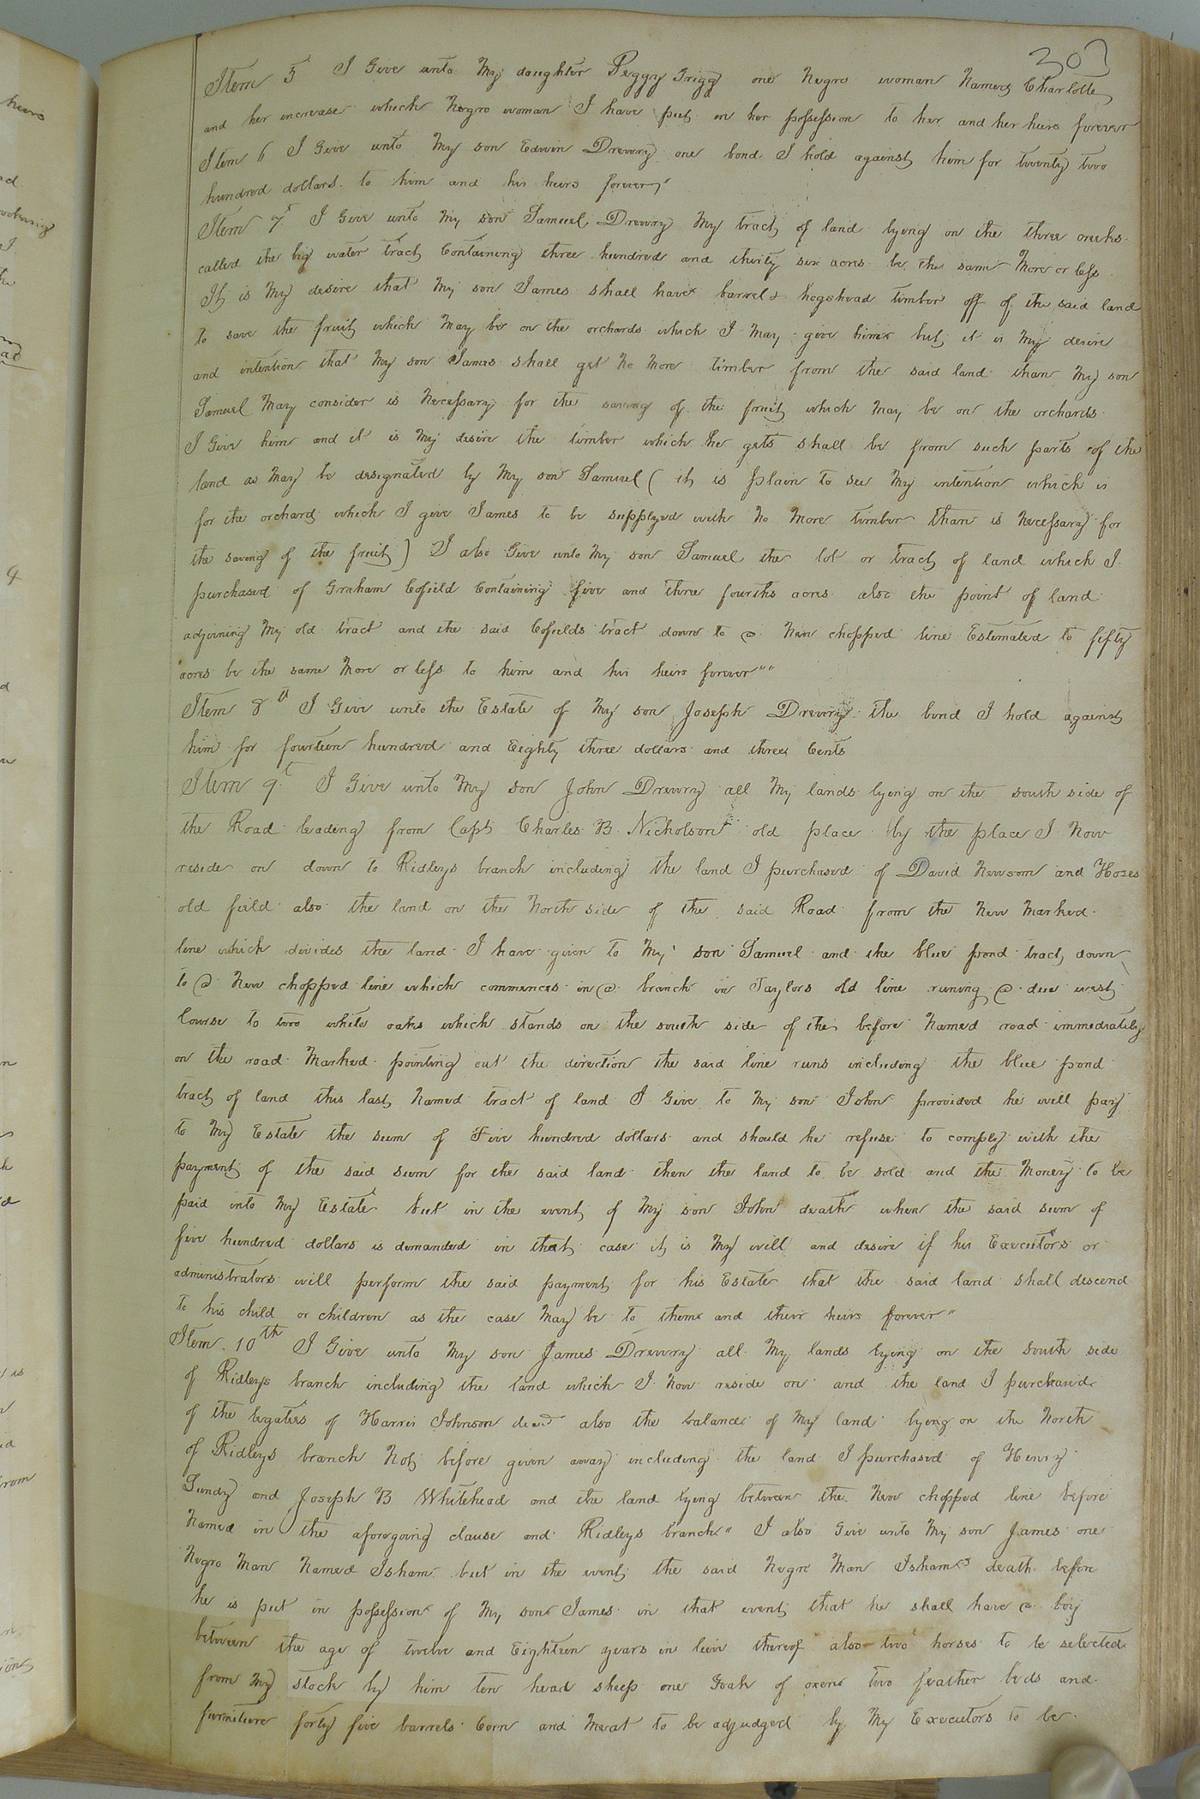 303
Item 5 I Give unto My daughter Peggy Grigg one Negro woman Named Charlotte
and her increase which Negro woman I have put in her possession to her and her heirs forever
Item 6 I Give unto My son Edwin Drewry one bond I hold against him for twenty two
hundred dollars to him and his heirs forever
Item 7th I Give unto My son Samuel Drewry My tract of land lying on the three creeks
called the big water tract Containing three hundred and thirty six acres be the same More or less
It is My desire that My son James shall have barrel & hogshead timber off of the said land
to save the fruit which May be on the orchards which I May give him but it is My desire
and intention that My son James shall get No More timber from the said land than My son
Samuel May consider is Necessary for the saving of the fruit which May be on the orchards
I Give him and it is My desire the timber which he gets shall be from such parts of the
land as May be designated by My son Samuel ( it is plain to see My intention which is
for the orchard which I give James to be supplyed with No More timber than is Necessary for
the saving of the fruit ) I also Give unto My son Samuel the lot or tract of land which I
purchased of Graham Cofield Containing five and three fourths acres also the point of land
adjoining My old tract and the said Cofields tract down to a New chopped line Estimated to fifty
acres be the same More or less to him and his heirs forever""
Item 8th I Give unto the Estate of My son Joseph Drewry the bond I hold against
him for fourteen hundred and Eighty three dollars and three Cents
Item 9t I Give unto My son John Drewry all My lands lying on the south side of
the Road leading from Capt Charles B Nicholson old place by the place I Now
reside on down to Ridleys branch including the land I purchased of David Newsom and
old field also the land on the North side of the said Road from the New Marked
line which divides the land I have given to My son Samuel and the blue pond tract down
to a New chopped line which commences in a branch in Taylors old line runing a due west
Course to two white oaks which stands on the south side of the before Named road immediately
on the road Marked pointing out the direction the said line runs including the blue pond
tract of land this last Named tract of land I Give to My son John provided he will pay
to My Estate the sum of Five hundred dollars and should he refuse to comply with the
payment of the said sum for the said land then the land to be sold and the Money to be
paid into My Estate but in the event of My son John death when the said sum of
five hundred dollars is demanded in that case it is My will and desire if his Executors or
administrators will perform the said payment for his Estate that the said land shall descend
to his child or children as the case May be to them and their heirs forever"
Item 10th I Give unto My son James Drewry all My lands lying on the south side
of Ridleys branch including the land which I Now reside on and the land I purchased
of the legatees of Harris Johnson decd also the balance of My land lying on the North
of Ridleys branch Not before given away including the land I purchased of Henry
and Joseph B Whitehead and the land lying between the New chopped line before
Named in the aforegoing clause and Ridleys branch" I also Give unto My son James one
Negro Man Named Isham but in the event the said Negro Man Ishams death before
he is put in possession of My son James in that event that he shall have a boy
between the age of twelve and Eighteen years in lieu thereof also two horses to be selected
from My stock by him ten head sheep one Yoak of oxens two feather beds and
furniture forty five barrels Corn and Meat to be adjudged by My Executors to be